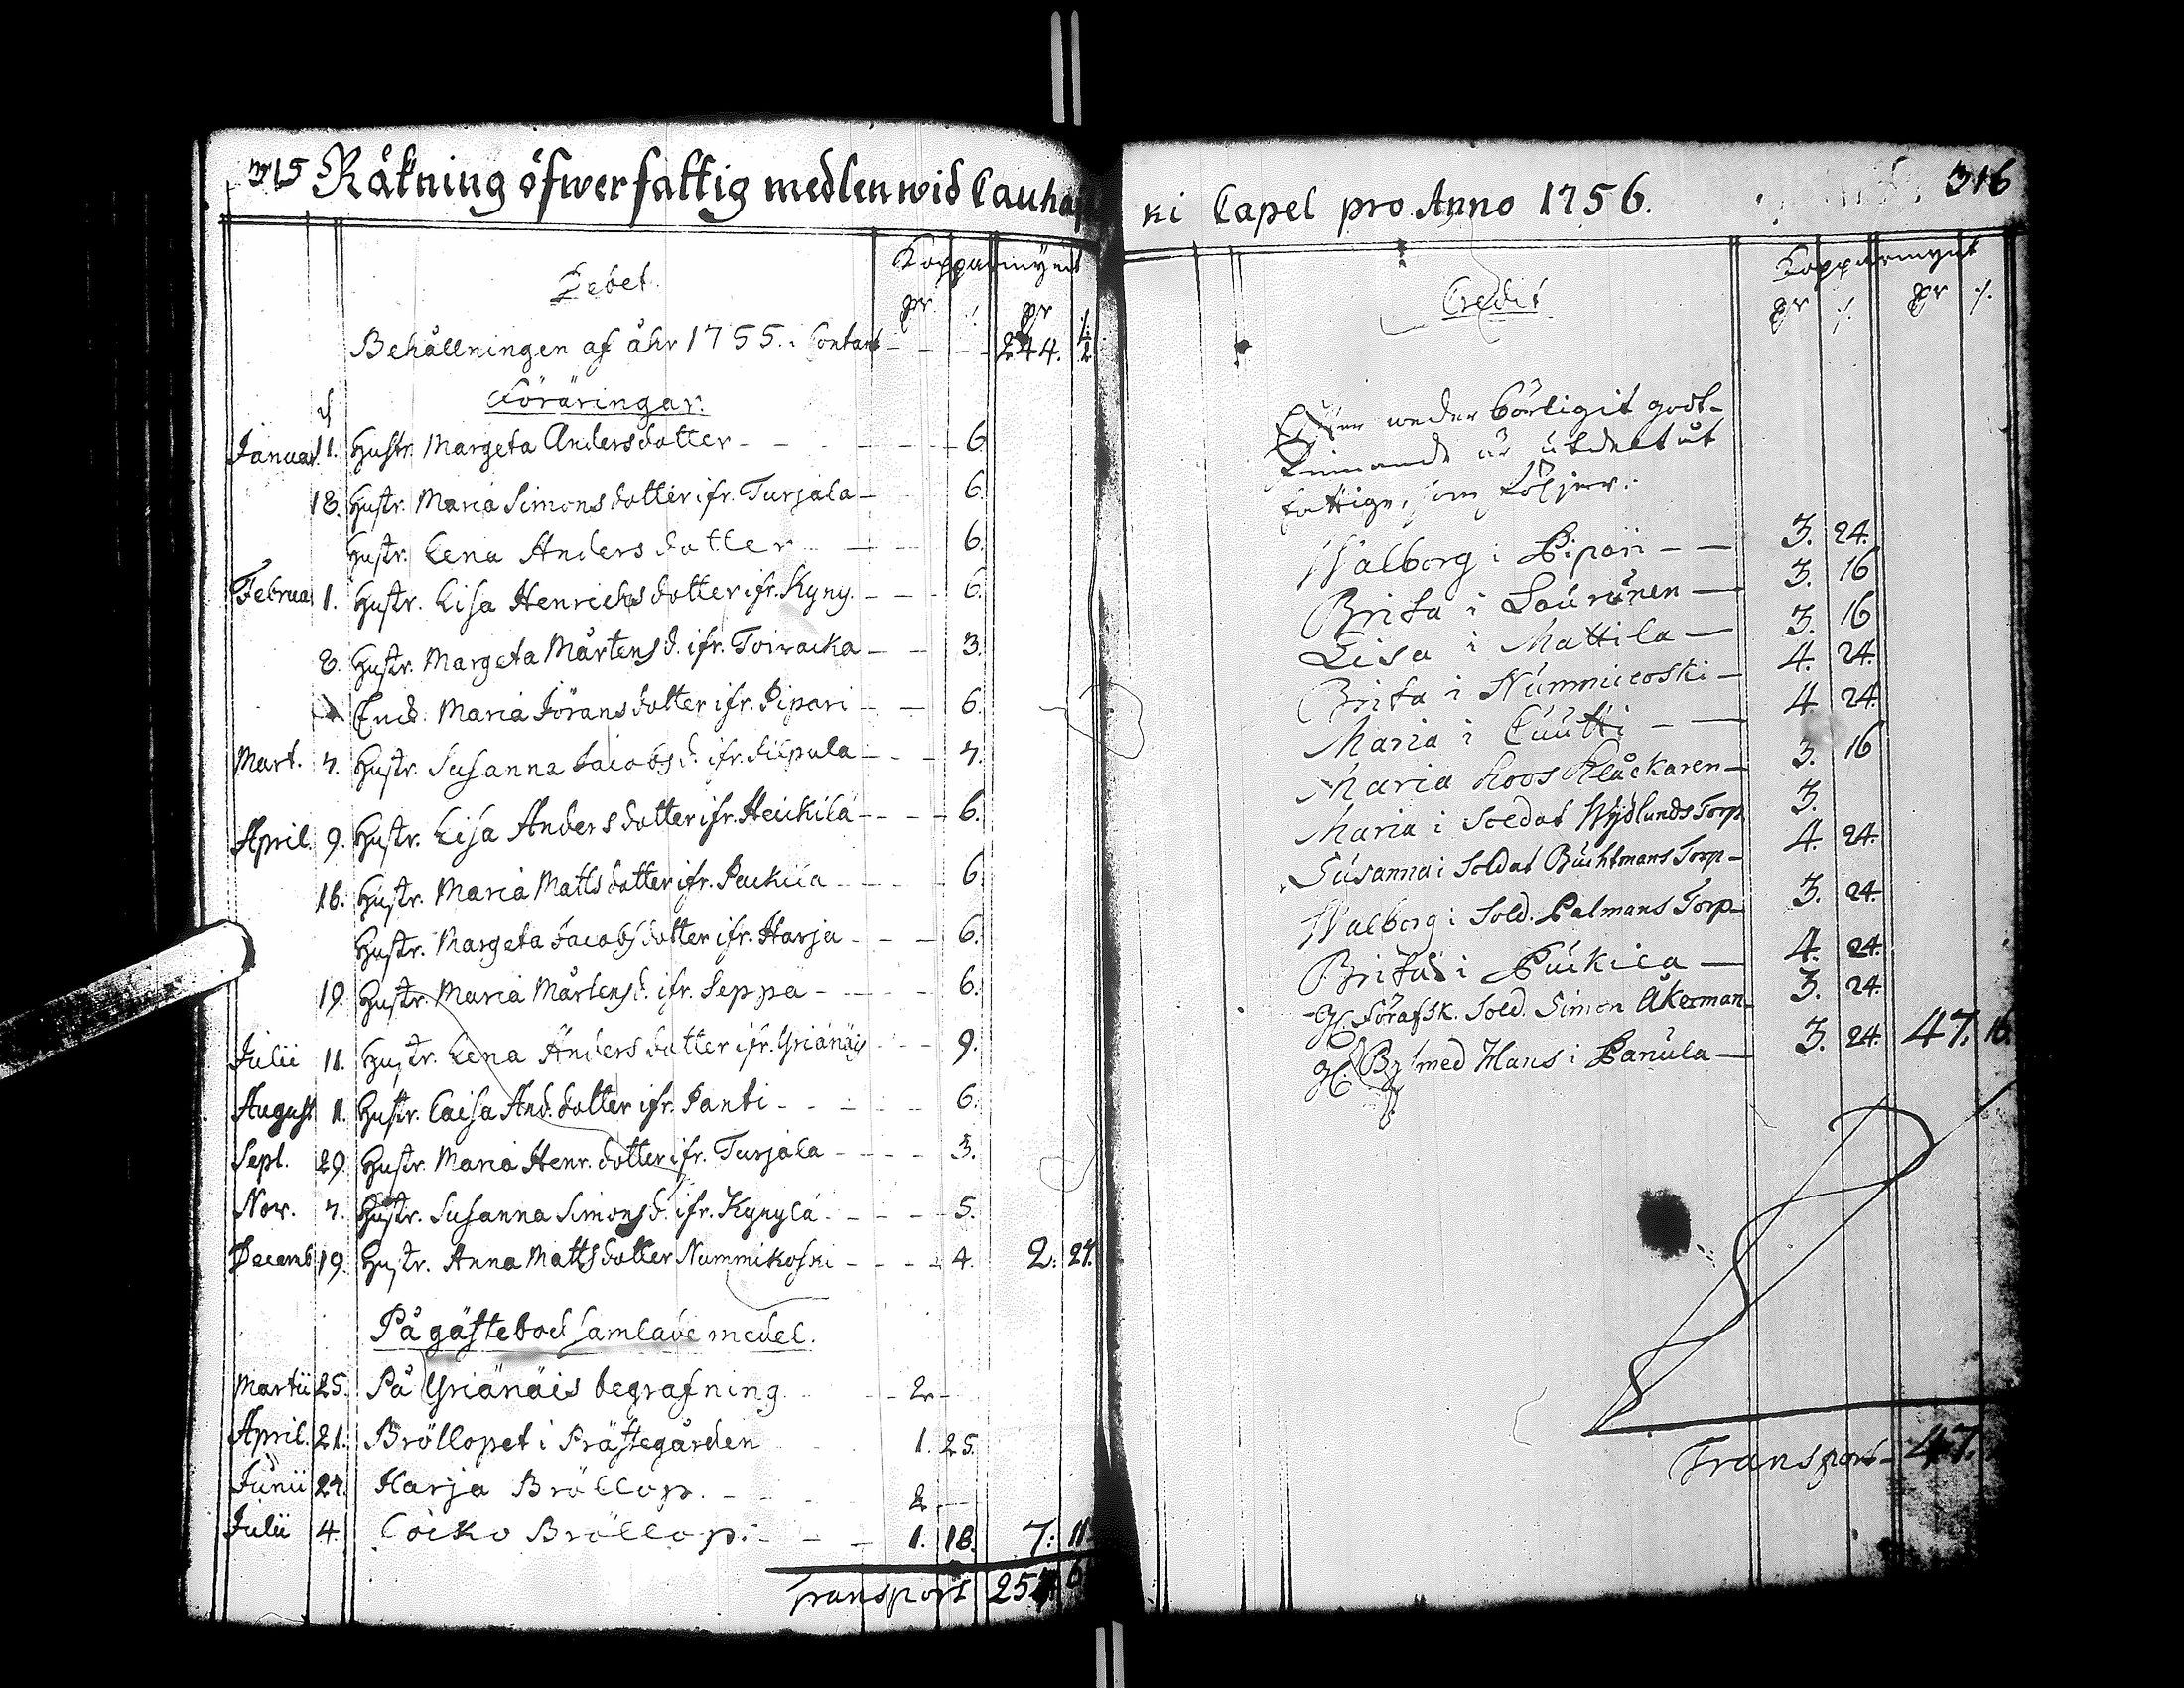 315 Räkning öfwer fattig medlen wid Cauhajo
Kopparmynt
Debet.
pr ./. pr ./.
Behållningen af åhr 1755. i Contant - - - 244. 2
Föräringar.
Januar. 11. Hustr. Margeta Andersdotter - - - - 6.
18. Hustr. Maria Simonsdotter ifr. Turjala - 6.
Hustr. Lena Andersdotter - - 6.
Februa 1. Hustr. Lisa Henrichsdotter ifr. Kyny. - - - 6.
8. Hustr. Margeta Mårtensd. ifr. Toivacka - - 3.
Enck. Maria Jöransdotter ifr. Pipari - - 6.
Mart. 7. Hustr. Susanna Jacobsd. ifr. Filpula - - - 7.
April. 9. Hustr. Lisa Andersdotter ifr. Heickilä - - - 6.
16. Hustr. Maria Mattsdotter ifr. - - - 6.
Hustr. Margeta Jacobsdotter ifr. Harja - - - 6.
19. Hustr. Maria Mårtensd. ifr. Seppä - - - - 6.
Julii 11. Hustr. Lena Andersdotter ifr. Griänäis - - - 9.
August 11. Hustr. Caisa And.dotter ifr. Panti - - - - - 6.
Sept. 29. Hustr. Maria Henr.dotter ifr. Turjala - - - - 3.
Nov. 7. Hustr. Susanna Simonsd. ifr. Kynylä. - - - - 5.
Decemb 19. Hustr. Anna Mattsdotter Nummikoski - - - - 4. 2. 27.
På gästebod samlade medel.
Martii 25. På Griänäis begrafning - - 2. -
April. 21. Bröllopet i Prästegården 1. 25.
Junii 27. Harja Bröllop. - - 2. -
Julii 4. Cöiko Bröllop. - - - 1. 18. 7: 11
Transport 254. 6

ki Capel pro Anno 1756. 316
Kopparmynt
Credit
pr ./. pr ./.
godt-
är utdelt åt
fattige, som följer:
Walborg i Pipari - - 3. 24.
Brita i Laurunen - 3. 16
Lisa i Mattila - 3. 16
Brita i Nummicoski - 4. 24.
Maria i Cuutti - - 4. 24.
Maria Roos Klåckaren - 3. 16
Maria i Soldat Wydlunds Torp 3.
Susanna i Soldat Buchtmans Torp - 4. 24.
Walborg i Sold. Palmans Torp - 3. 24.
Brita i - 4. 24.
gl. Förafsk. Sold. Simon Åkerman - 3. 24.
gl. med Hans i Panula - 3. 24. 47. 16.
Transport - 47.